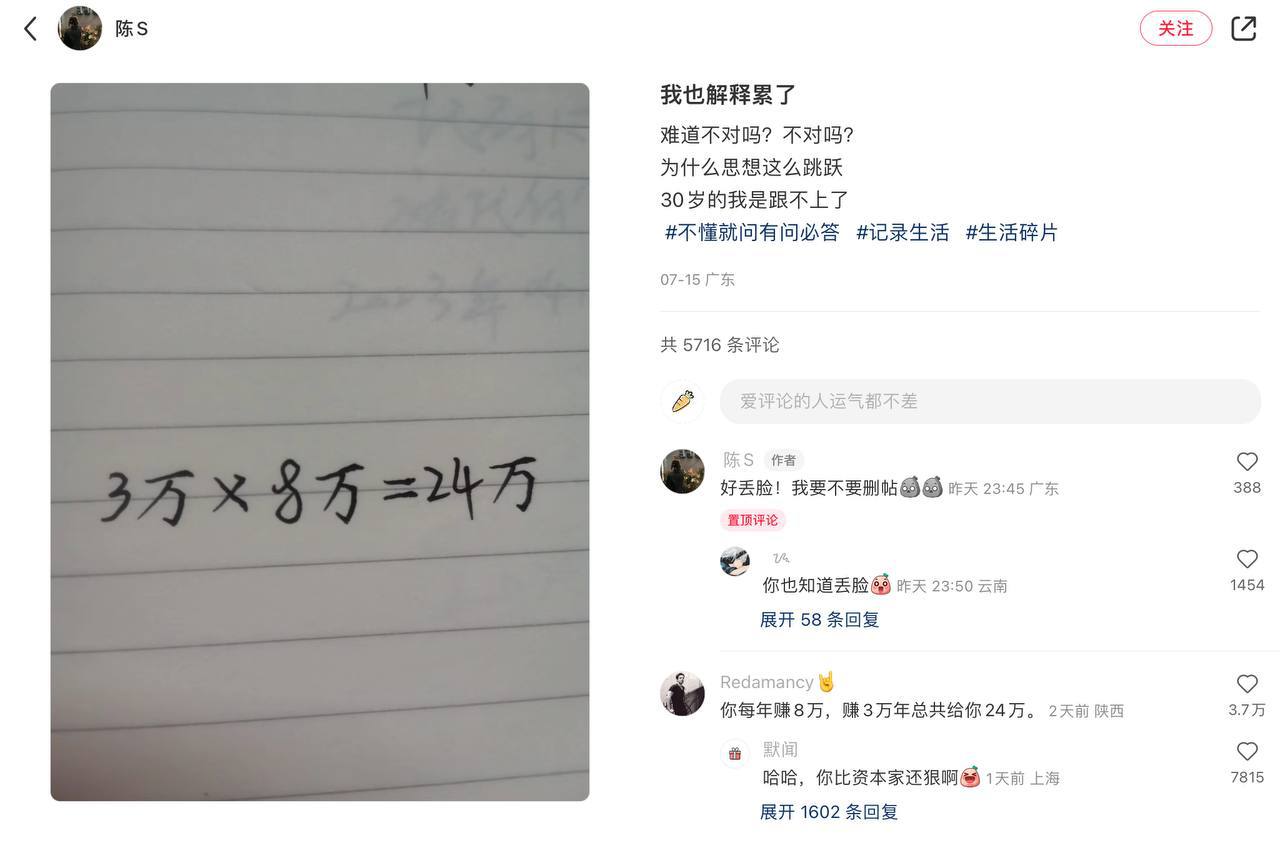 陈S
关注
3万×8万=24万
我也解释累了
难道不对吗？不对吗？
为什么思想这么跳跃
30岁的我是跟不上了
#不懂就问有问必答 #记录生活 #生活碎片
07-15 广东
共 5716 条评论
爱评论的人运气都不差
陈S 作者
好丢脸！我要不要删帖 昨天 23:45 广东
388
置顶评论
你也知道丢脸 昨天 23:50 云南
1454
展开 58 条回复
Redamancy
你每年赚8万，赚3万年总共给你24万。 2天前 陕西
3.7万
默闻
哈哈，你比资本家还狠啊 1天前 上海
7815
展开 1602 条回复